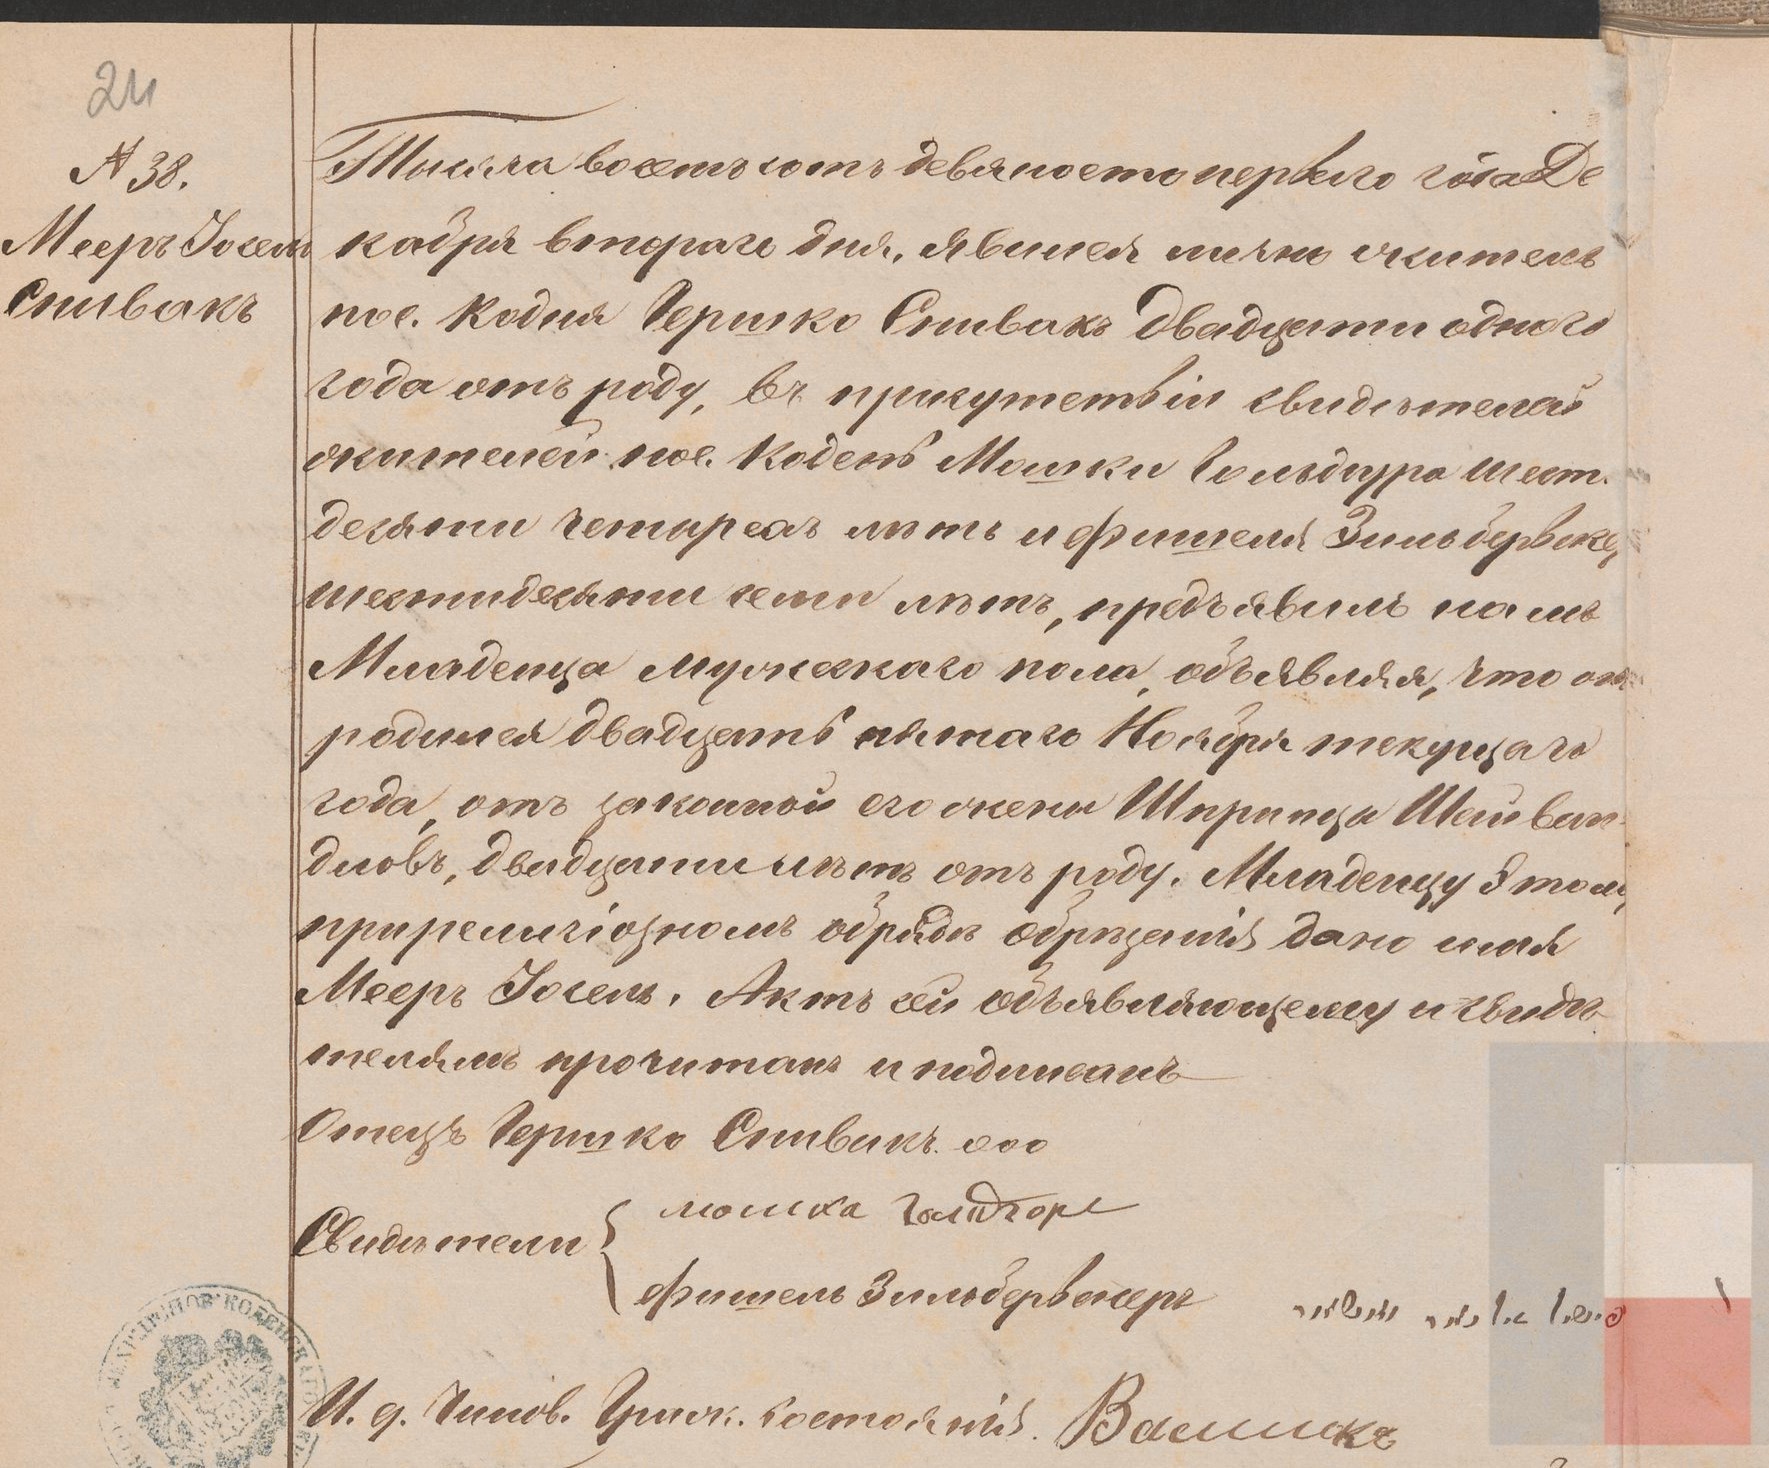 24
№ 38.
Мееръ Іосель
Спивакъ
Тысяча восемьсотъ девяносто первого года Де
кабря втораго дня, явился лично житель
пос. Кодня Гершко Спивакъ двадцати одного
года отъ роду, въ присутствіи свидѣтелей
жителей пос. Кодень Мошки Гольдцура шест.
десяти четырехъ лѣтъ и Фишеля
шестидесяти семи лѣтъ, предъявилъ намъ
Младенца мужескаго пола, объявляя, что онъ
родился двадцать пятаго Ноября текущаго
года, отъ законной его жены Шпринца
двадцати лѣтъ отъ роду. Младенцу этому
при религіозномъ обрядѣ обрѣзанія дано имя
Мееръ Іосель. Актъ сей объявляющему и свидѣ
телямъ прочитанъ и подписанъ
Отецъ Гершко Спивакъ. ооо
Свидѣтели { мошка
Фишель Зильбервассеръ
И. д. Чинов. Гражд. состоянія.